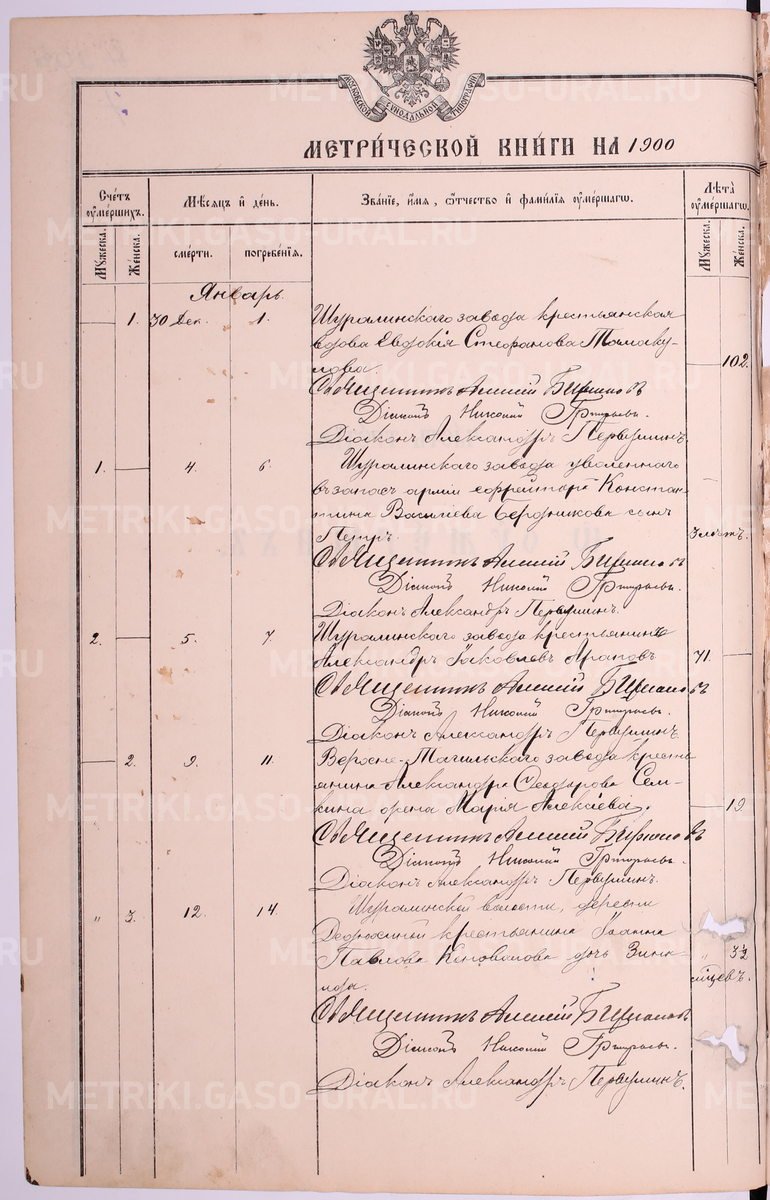 МОСКОВСКОЙ СѴНОДАЛЬНОЙ ТИПОГРАФІИ
МЕТРИ́ЧЕСКОЙ КНИ́ГИ НА 1900
Сче́тъ ᲂумершихъ.
Мѣсяцъ и҆ де́нь.
Зва́нїе, и҆́мя, ѻ҆́тчество и҆ фами́лїя ᲂуме́ршагѡ.
Лѣта̀ ᲂуме́ршагѡ.
Мꙋжеска.
Же́нска.
сме́рти.
погребе́нїя.
Мꙋжеска.
Же́нска.
Январь.
1. 30 Дек. 1. Шуралинскаго завода крестьянская
вдова Евдокія Стефанова Томаку-
лова. 102.
Священникъ Алексій Бирюковъ
Діаконъ Николай Григорьевъ.
Діаконъ Александръ Первушинъ.
1. 4. 6. Шуралинскаго завода уволеннаго
въ запасъ арміи ефрейтора Констан-
тина Василіева Бердникова сынъ
Петръ. 3 лѣтъ.
Священникъ Алексій Бирюковъ
Діаконъ Николай Григорьевъ.
Діаконъ Александръ Первушинъ.
2. 5. 7. Шуралинскаго завода крестьянинъ
Александръ Іаковлевъ Араповъ. 71.
Священникъ Алексій Бирюковъ
Діаконъ Николай Григорьевъ.
Діаконъ Александръ Первушинъ.
2. 9. 11. Верхне-Тагильскаго завода кресть-
янина Александра Ѳеодорова Сем-
кина жена Марія Алексіева. 19
Священникъ Алексій Бирюковъ
Діаконъ Николай Григорьевъ.
Діаконъ Александръ Первушинъ.
" 3. 12. 14. Шуралинской волости, деревни
крестьянина Іоанна
Павлова Коновалова дочь Зина-
ида. " 3½
мѣсяцевъ.
Священникъ Алексій Бирюковъ
Діаконъ Николай Григорьевъ.
Діаконъ Александръ Первушинъ.
METRIKI.GASO-URAL.RU